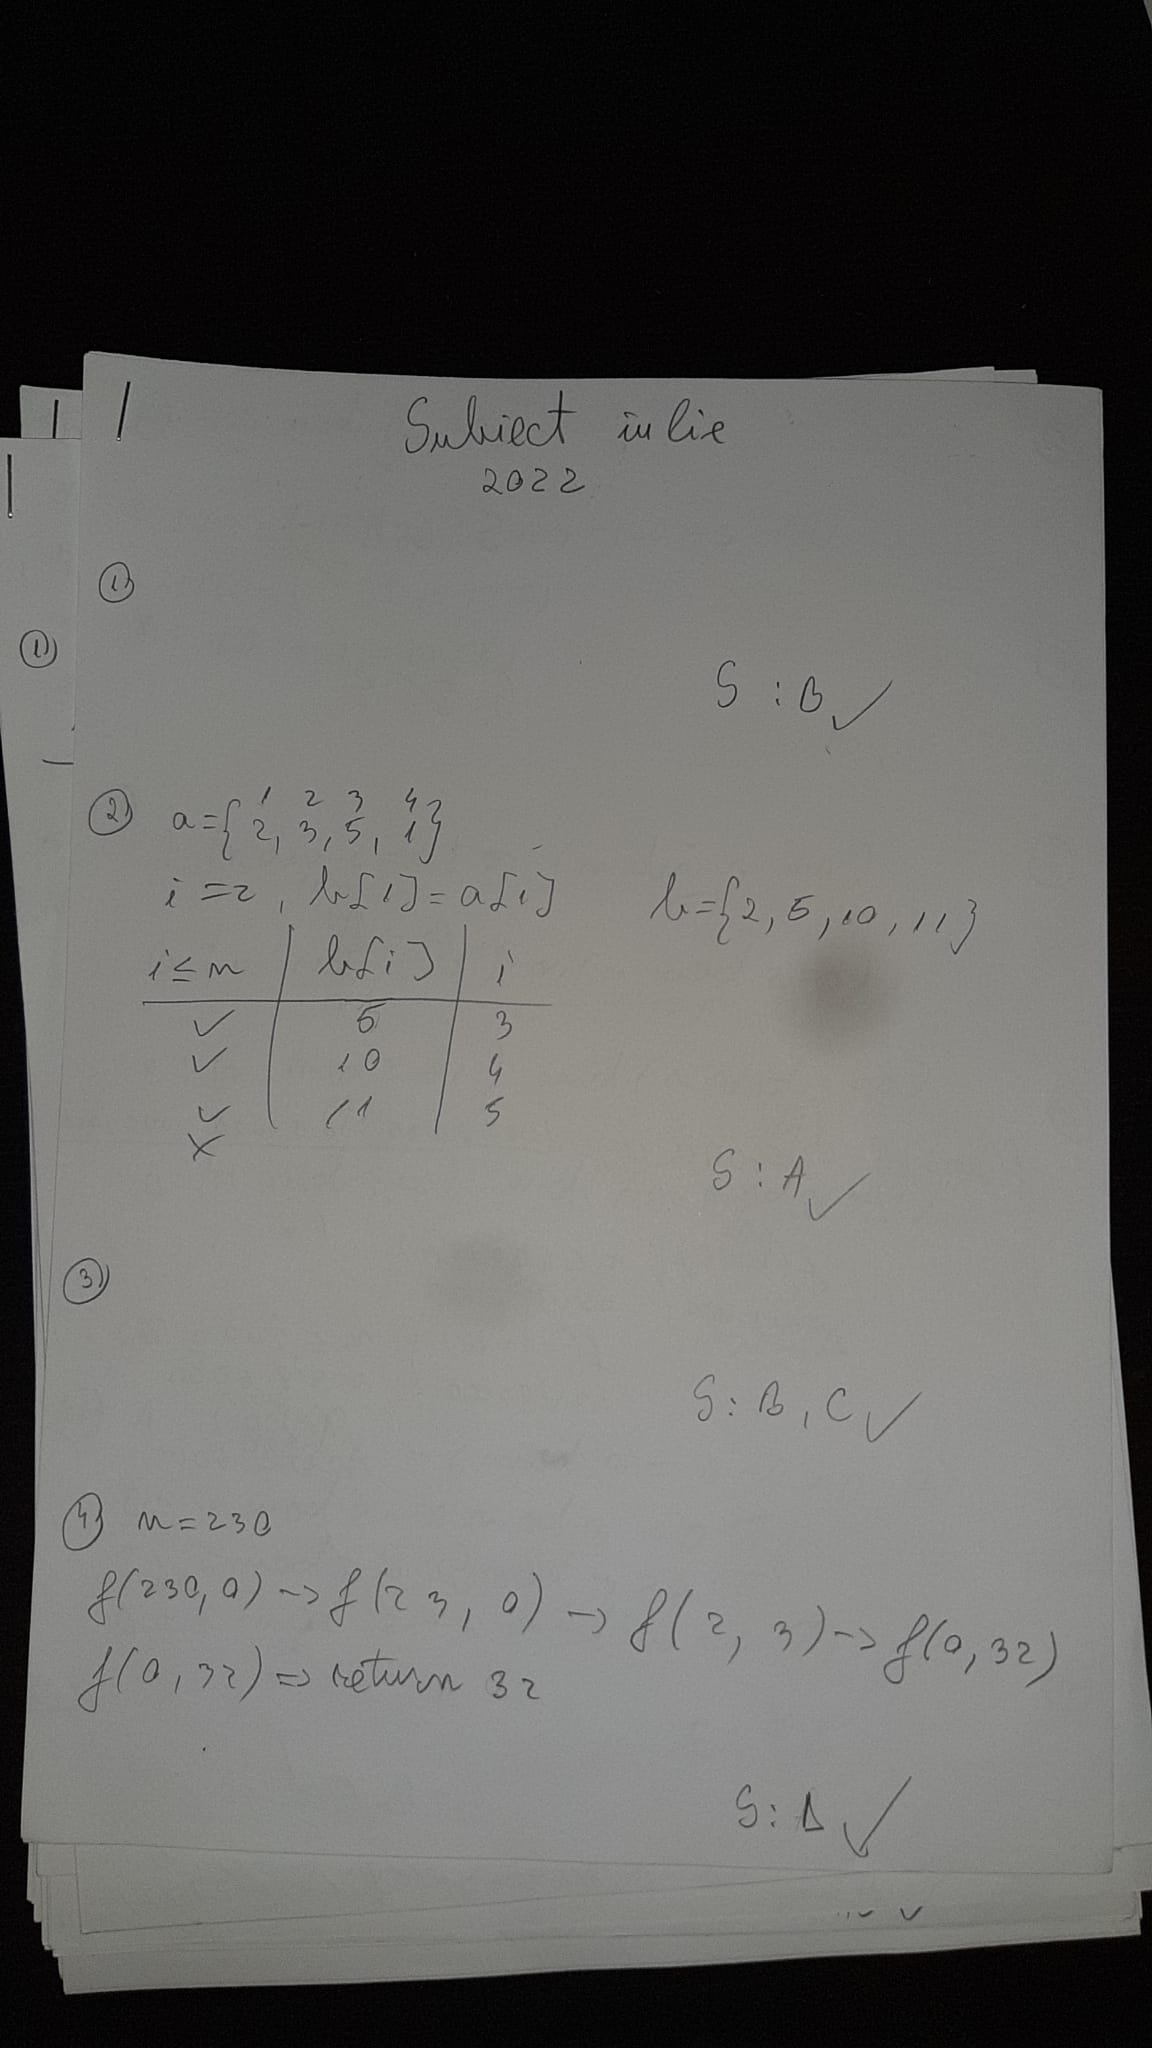 Subiect iulie
2022
1)
1)
S: B ✓
2) a={2, 3, 5, 1}
1 2 3 4
i=2, b[1]=a[1] b={2, 5, 10, 11}
i≤n | b[i] | i
✓ | 5 | 3
✓ | 10 | 4
✓ | 11 | 5
X
S: A ✓
3)
S: B, C ✓
4) n=230
f(230,0) -> f(23, 0) -> f(2, 3) -> f(0,32)
f(0,32) => return 32
S: ✓